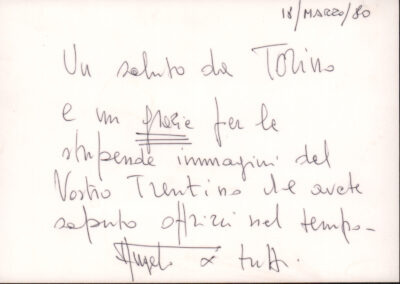 18/MARZO/80
Un saluto da Torino
e un grazie per le
stupende immagini del
Vostro Trentino che avete
saputo offrirci nel tempo-
Auguri a tutti.